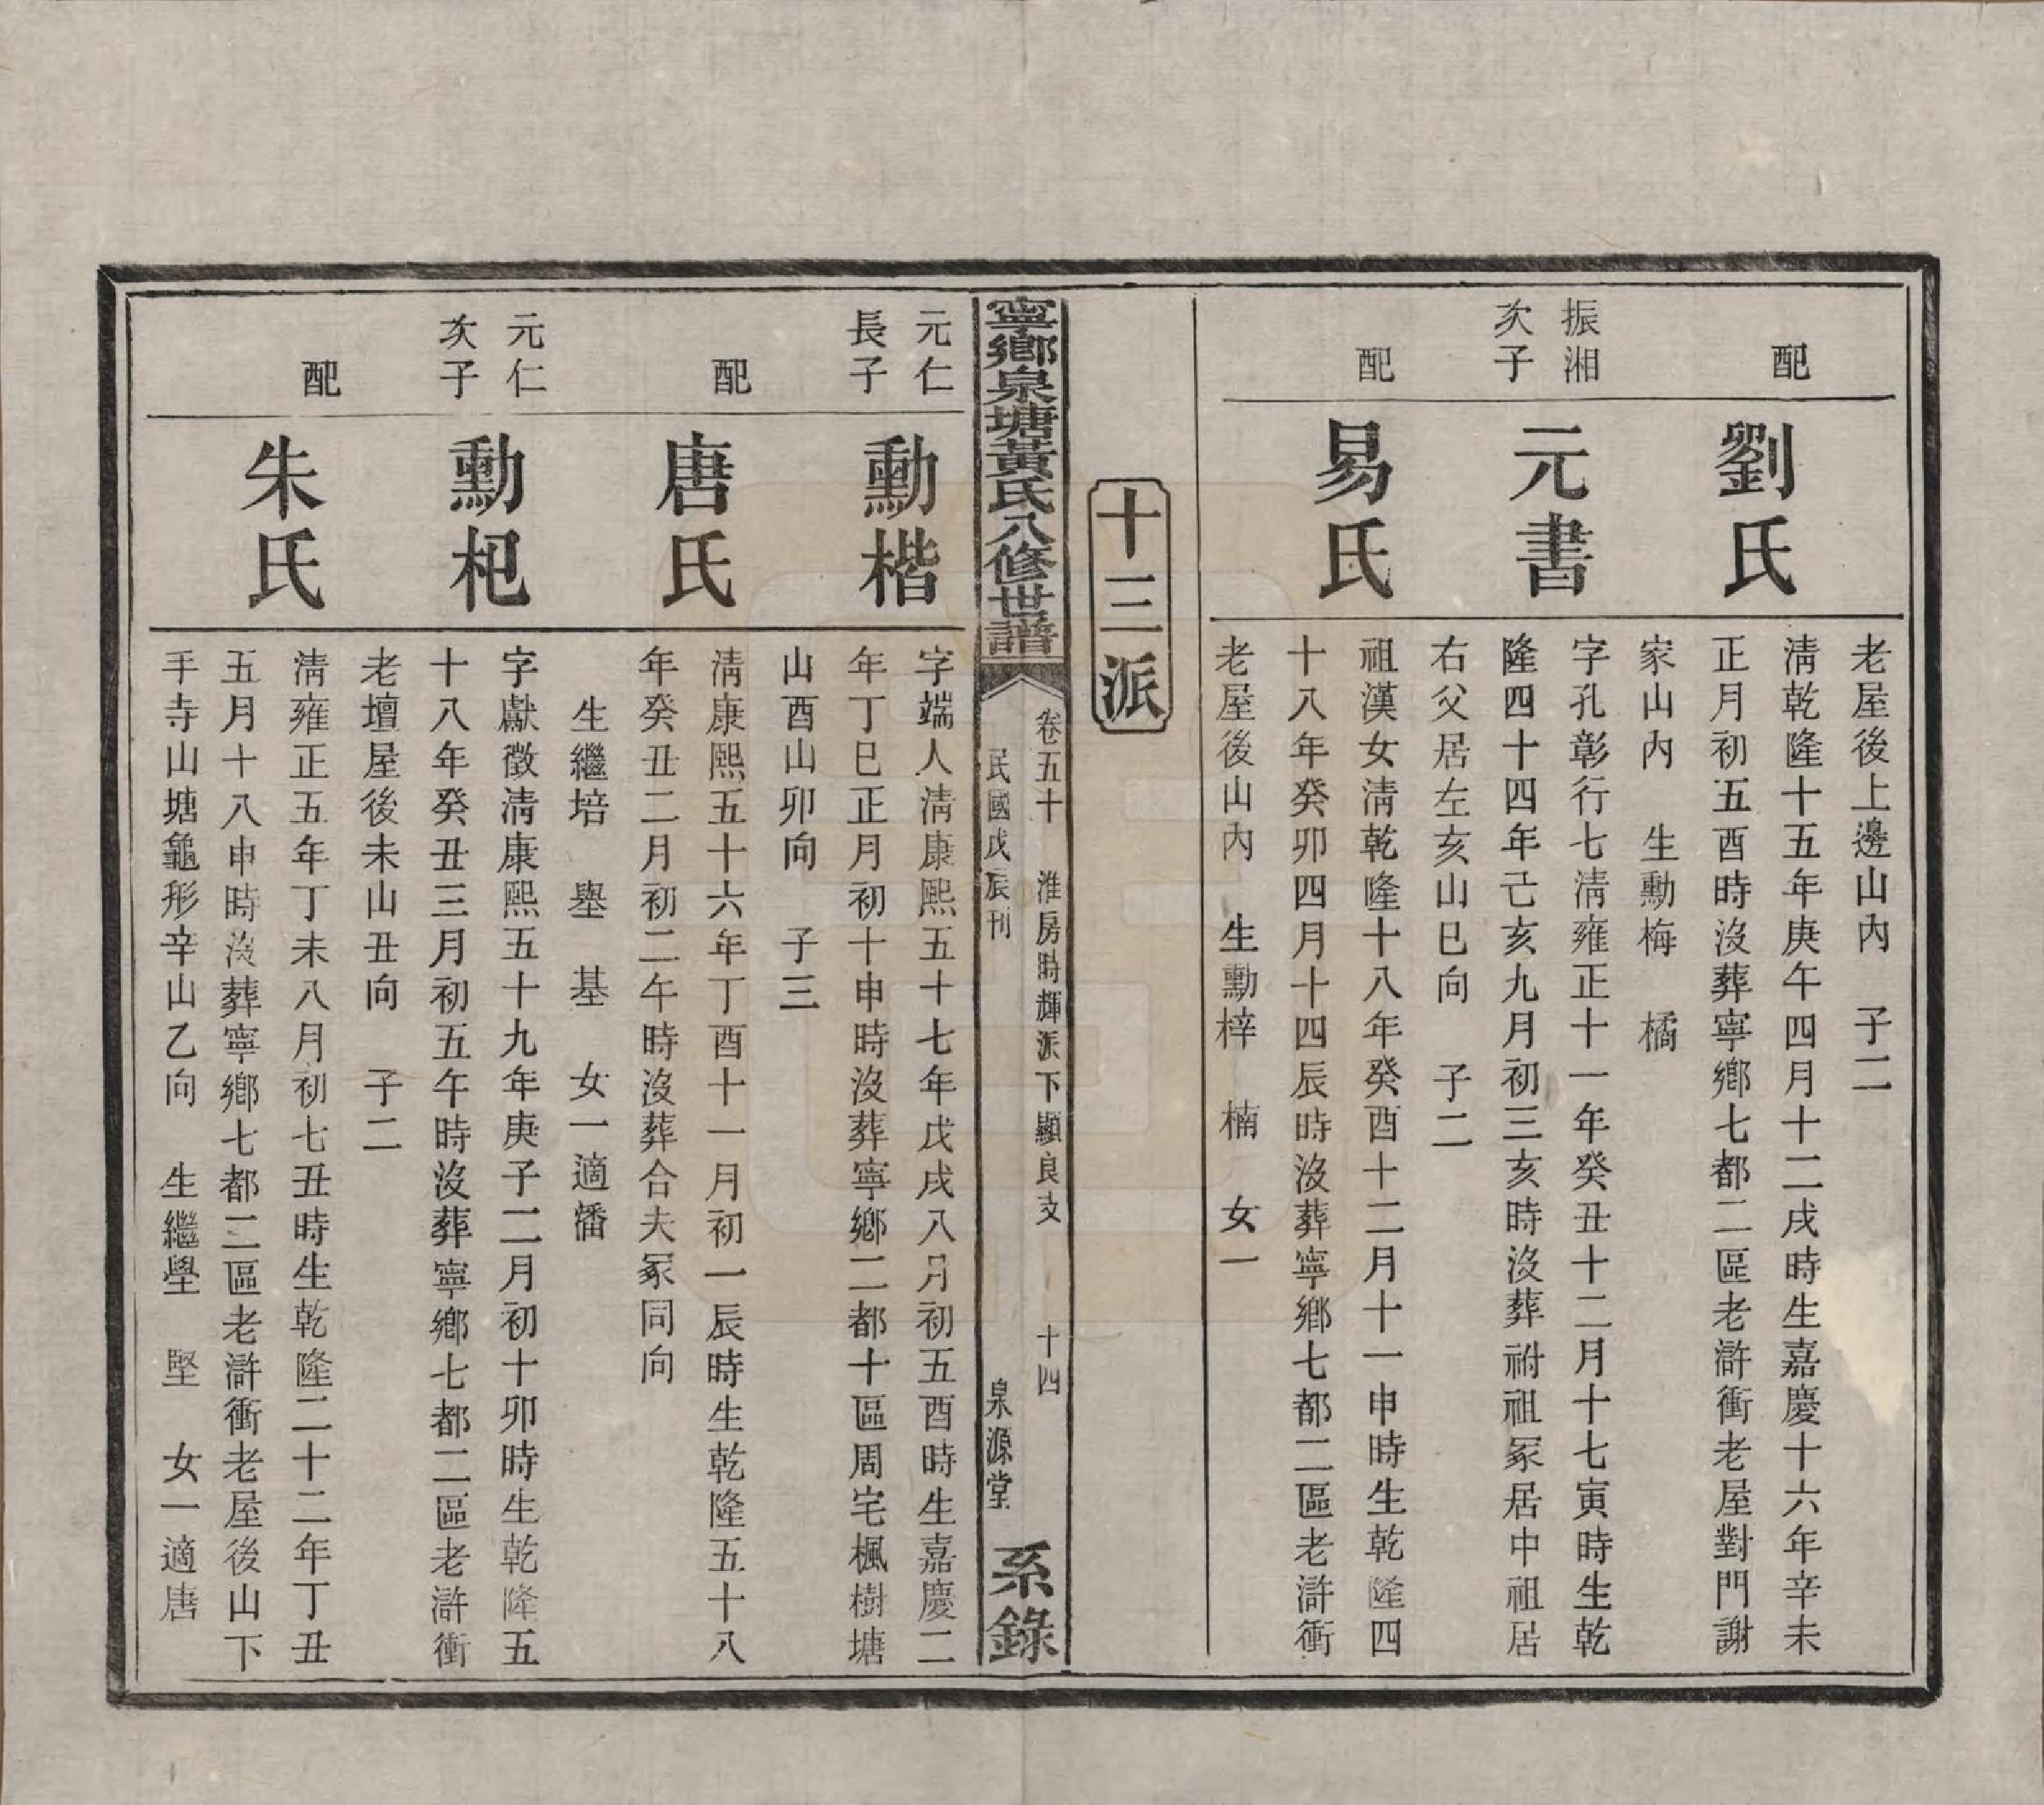 老屋後上邊山內　子二
配
劉氏
清乾隆十五年庚午四月十二戌時生嘉慶十六年辛未
正月初五酉時沒葬寧鄉七都二區老滸衝老屋對門謝
家山內　生勳梅　橘
振湘
次子
元書
字孔彰行七清雍正十一年癸丑十二月十七寅時生乾
隆四十四年己亥九月初三亥時沒葬祔祖冢居中祖居
右父居左亥山巳向　子二
配
易氏
祖漢女清乾隆十八年癸酉十二月十一申時生乾隆四
十八年癸卯四月十四辰時沒葬寧鄉七都二區老滸衝
老屋後山內　生勳梓　楠　女一
十三派
卷五十　淮房時輝派下顯良支　十四
寧鄉泉塘黃氏八修世譜
民國戊辰刊　泉源堂
系錄
元仁
長子
勳楷
字端人清康熙五十七年戊戌八月初五酉時生嘉慶二
年丁巳正月初十申時沒葬寧鄉二都十區周宅楓樹塘
山酉山卯向　子三
配
唐氏
清康熙五十六年丁酉十一月初一辰時生乾隆五十八
年癸丑二月初二午時沒葬合夫冢同向
生繼培　壆　基　女一適潘
元仁
次子
勳杞
字獻徵清康熙五十九年庚子二月初十卯時生乾隆五
十八年癸丑三月初五午時沒葬寧鄉七都二區老滸衝
老壇屋後未山丑向　子二
配
朱氏
清雍正五年丁未八月初七丑時生乾隆二十二年丁丑
五月十八申時沒葬寧鄉七都二區老滸衝老屋後山下
手寺山塘龜形辛山乙向　生繼壆　堅　女一適唐